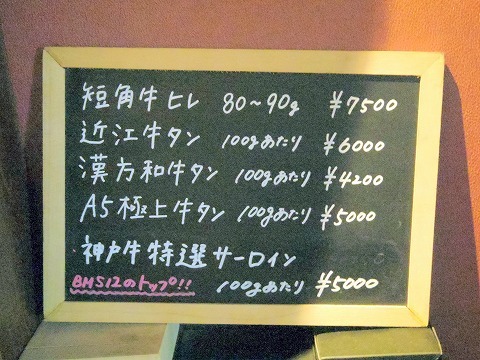 短角牛ヒレ 80~90g ¥7500
近江牛タン 100gあたり ¥6000
漢方和牛タン 100gあたり ¥4200
A5極上牛タン 100gあたり ¥5000
神戸牛特選サーロイン
BMS12のトップ!! 100gあたり ¥5000